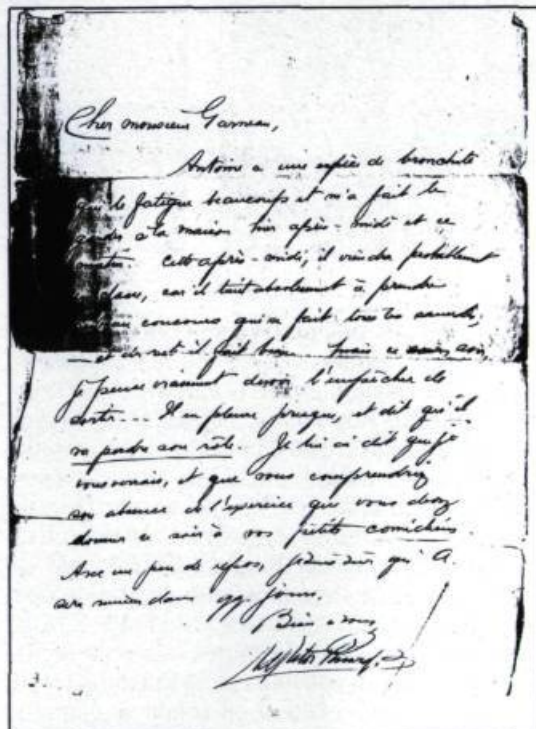 Cher monsieur Garneau,
Antoine a une espèce de bronchite
qui le fatigue beaucoup et m'a fait le
garder à la maison hier après-midi et ce
matin. Cet après-midi, il viendra probablement
en classe, car il tient absolument à prendre
au concours qui se fait tous les samedis,
et de ce il fait bien. Mais ce soir,
je pense vraiment devoir l'empêcher de
sortir... Il en pleure presque, et dit qu'il
va perdre son rôle. Je lui ai dit que je
vous verrais, et que vous comprendriez
son absence de l'exercice que vous devez
donner ce soir à vos petits comédiens.
Avec un peu de repos, je suis sûr qu'A.
sera mieux dans qq. jours.
Bien à vous,